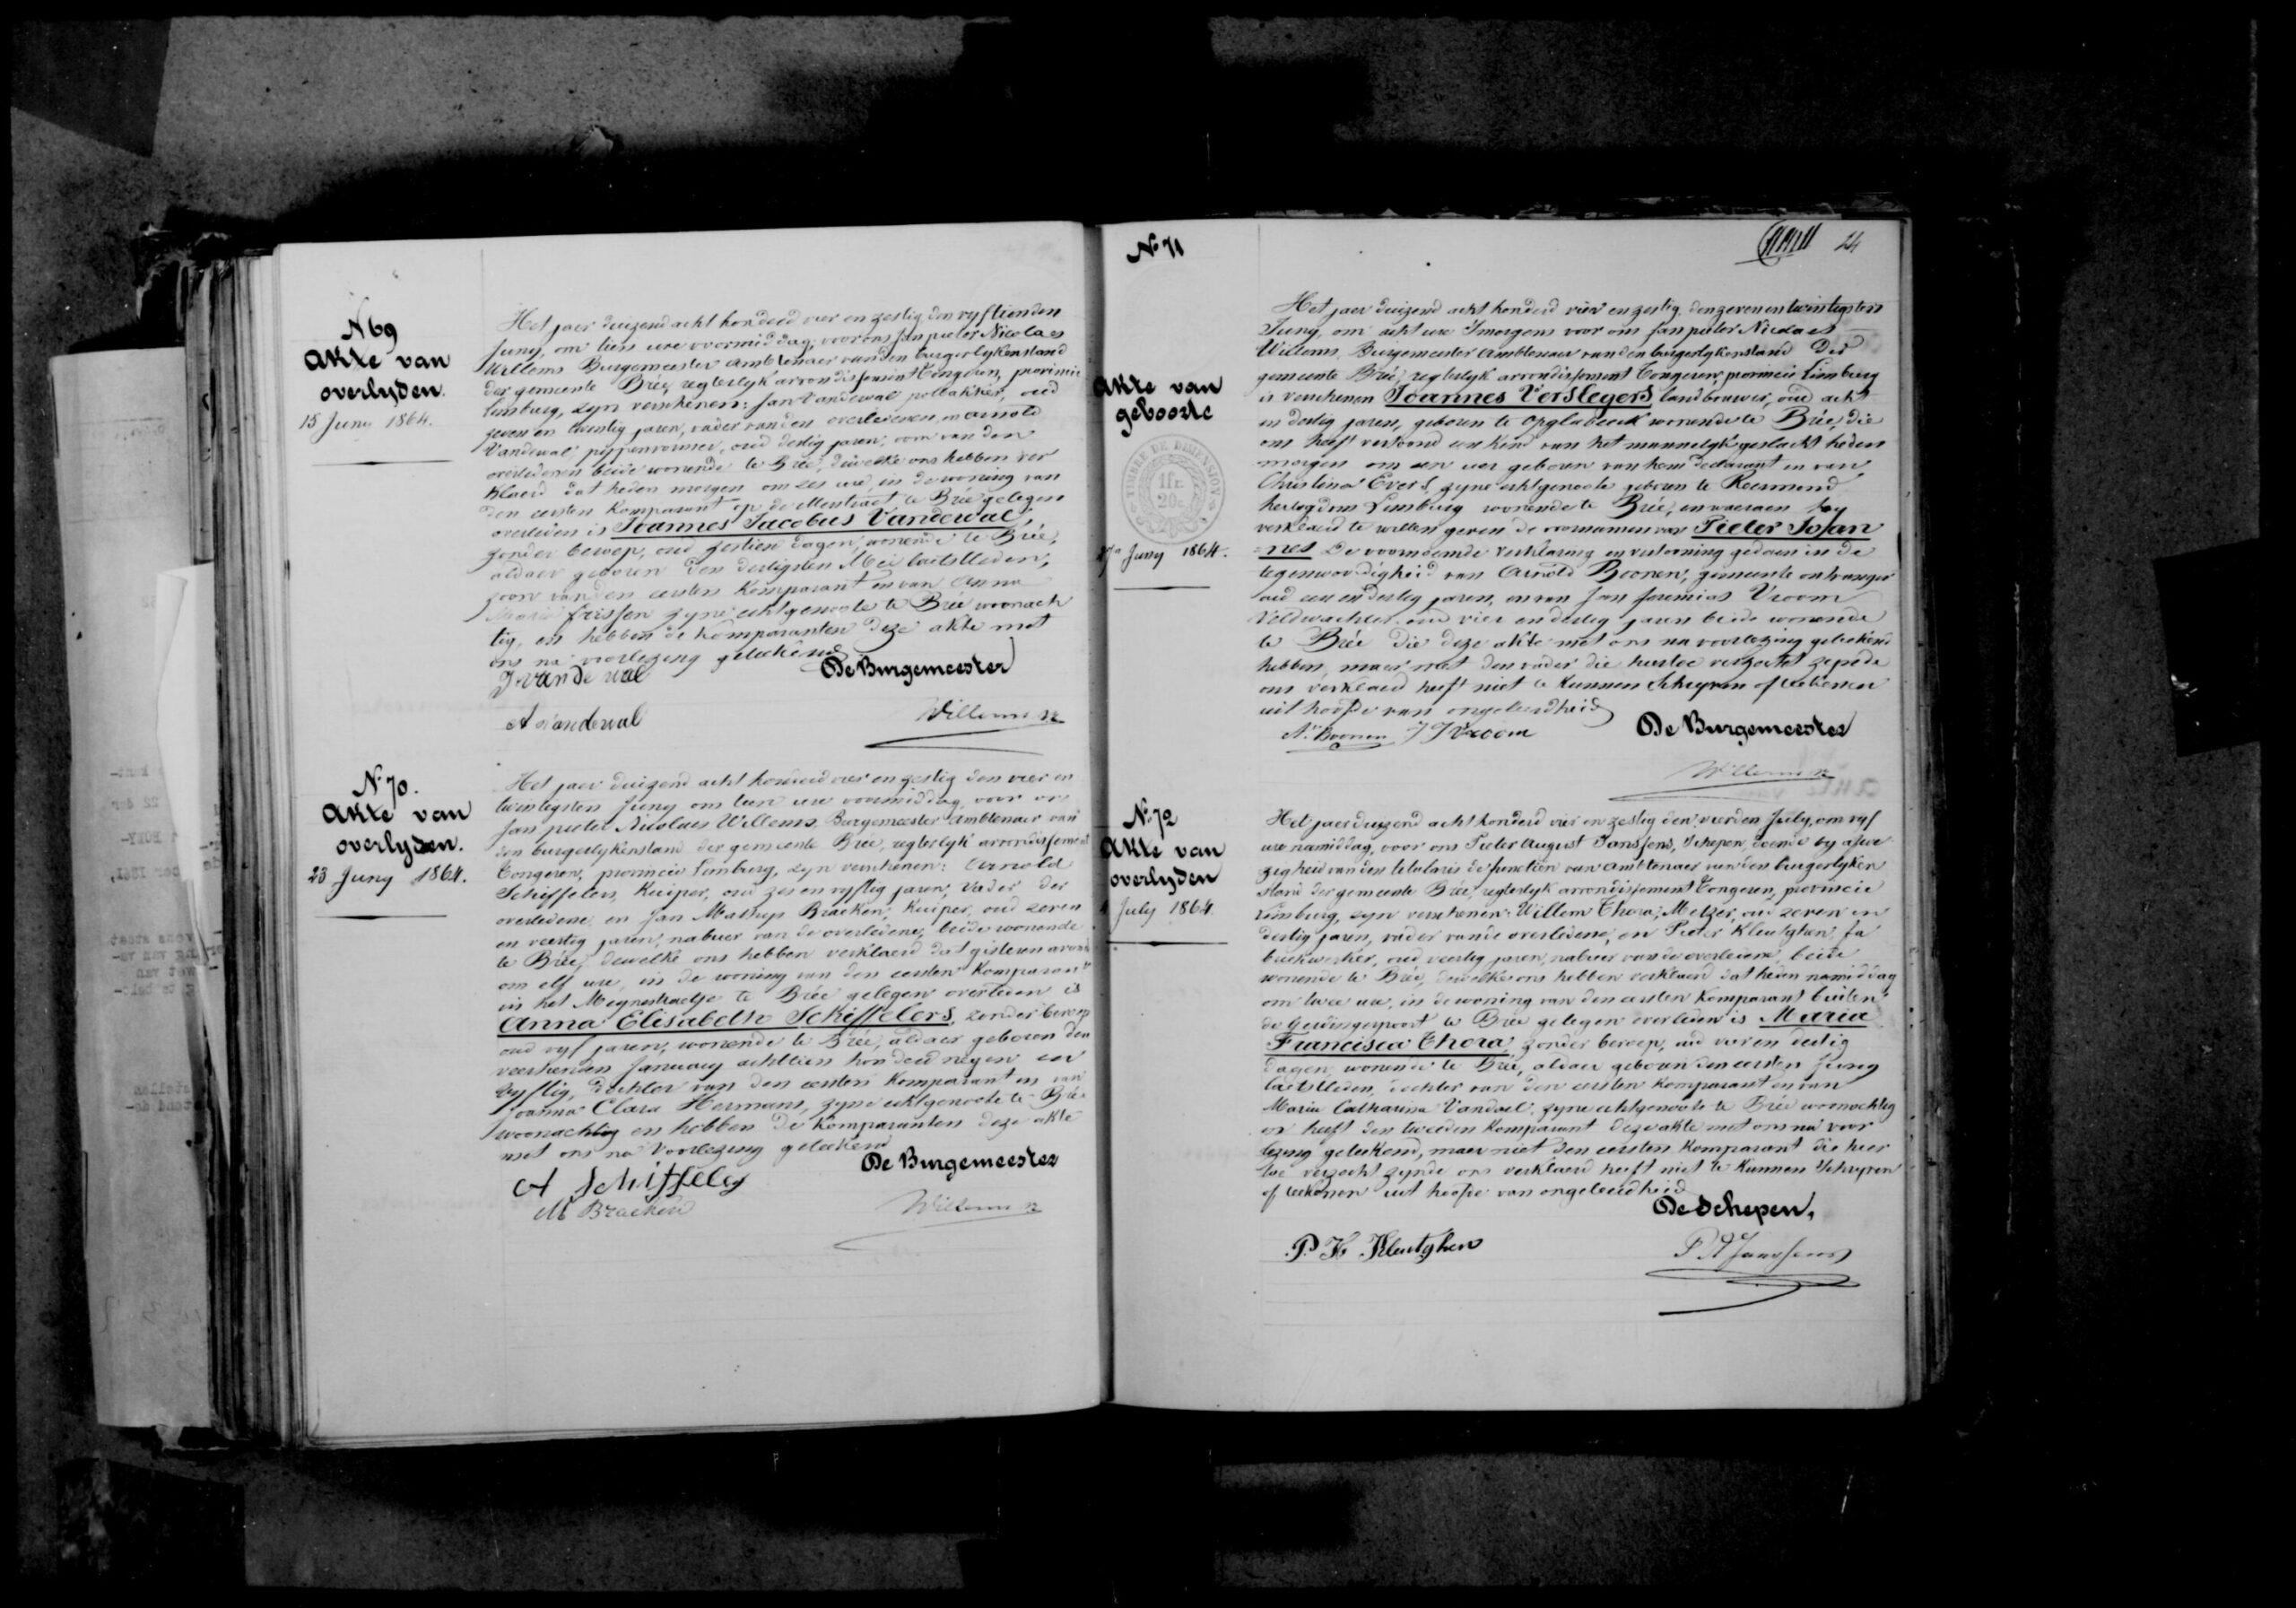 N 69
Akte van
overlyden.
15 Juny 1864.
Het jaer duizend acht honderd vier en zestig den vyftienden
Juny, om tien ure voormiddag, voor ons Jan pieter Nicolaes
Willems Burgemeester Ambtenaer van den burgerlykenstand
der gemeente Brée, regterlyk arrondissement Tongeren, provincie
Limburg, zyn verschenen: Jan Vandewal potbakker, oud
zeven en twintig jaren, vader van den overledenen en Arnold
Vandewal pypenvormer, oud dertig jaren, oom van den
overledenen beide wonende te Brée, dewelke ons hebben ver
klaerd dat heden morgen om zes ure, in de woning van
den eersten komparant op de te Brée gelegen
overleden is Joannes Jacobus Vandewal,
zonder beroep, oud zestien dagen, wonende te Brée,
aldaer geboren den dertigsten Mei laetstleden,
zoon van den eersten komparant en van Anna
Maria frissen zyne echtgenoote te Brée woonach
tig, en hebben de komparanten deze akte met
ons na voorlezing geteekend
De Burgemeester
J vande wal
A Vandewal
Willems
N 70.
Akte van
overlyden.
23 Juny 1864.
Het jaer duizend acht honderd vier en zestig den vier en
twintigsten Juny om tien ure voormiddag, voor ons
Jan pieter Nicolaes Willems Burgemeester Ambtenaer van
den burgerlykenstand der gemeente Brée, regterlyk arrondissement
Tongeren, provincie Limburg, zyn verschenen: Arnold
Schiffelers, Kuiper, oud zes en vyftig jaren, vader der
overledene en Jan Mathys Braeken, Kuiper, oud zeven
en veertig jaren, nabuer van de overledene, beide wonende
te Brée, dewelke ons hebben verklaerd dat gisteren avond
om elf ure, in de woning van den eersten komparant
in het te Brée gelegen overleden is
Anna Elisabeth Schiffelers, zonder beroep
oud vyf jaren, wonende te Brée, aldaer geboren den
veertienden January achttien honderd negen en
vyftig, dochter van den eersten komparant en van
Joanna Clara Hermans, zyne echtgenoote te Brée
woonachtig en hebben de komparanten deze akte
met ons na voorlezing geteekend
De Burgemeester
A Schiffelers
M Braeken
Willems
24
N 71
Akte van
geboorte
TIMBRE DE DIMENSION
1 fr.
20 c
27n Juny 1864.
Het jaer duizend acht honderd vier en zestig, den zeven en twintigsten
Juny, om acht ure 's morgens voor ons Jan pieter Nicolaes
Willems, Burgemeester Ambtenaer van den burgerlykenstand Der
gemeente Brée, regterlyk arrondissement Tongeren, provincie Limburg
is verschenen Joannes Verslegers landbouwer, oud acht
en dertig jaren, geboren te Opglabeek wonende te Brée, die
ons heeft vertoond een kind van het mannelyk geslacht heden
morgen om een ure geboren van hem declarant en van
Christina Evers, zyne echtgenoote geboren te Roermond
hertogdom Limburg wonende te Brée, en waeraen hy
verklaerd te willen geven de voornamen van Pieter Johan
=nes De voornoemde verklaring en vertooning gedaen in de
tegenwoordigheid van Arnold Boonen, gemeente ontvanger
oud een en dertig jaren, en van Jan Jeremias Vroom
Veldwachter oud vier en dertig jaren beide wonende
te Brée die deze akte met ons na voorlezing geteekend
hebben, maer niet den vader die hiertoe verzocht zynde
ons verklaerd heeft niet te kunnen schryven of teekenen
uit hoofde van ongeleerdheid
De Burgemeester
Ad Boonen J J Vroom
Willems
N 72
Akte van
overlyden
4 July 1864
Het jaer duizend acht honderd vier en zestig den vierden July, om vyf
ure namiddag, voor ons Pieter August Janssens, Schepen, doende by afwe
zigheid van den titularis de functien van Ambtenaer van den burgerlyken
stand der gemeente Brée, regterlyk arrondissement Tongeren, provincie
Limburg, zyn verschenen: Willem Thora, Metzer, oud zeven en
dertig jaren, vader vande overledene, en Pieter Kleutghen, fa
briekwerker, oud veertig jaren, nabuer van de overledene, beide
wonende te Brée, dewelke ons hebben verklaerd dat heden namiddag
om twee ure, in de woning van den eersten komparant buiten
de Gerdingerpoort te Brée gelegen overleden is Maria
Francisca Thora, zonder beroep, oud vier en dertig
dagen, wonende te Brée, aldaer geboren den eersten Juny
laetstleden, dochter van den eersten komparant en van
Maria Catharina Vandael, zyne echtgenoote te Brée woonachtig
en heeft den tweeden komparant deze akte met ons na voor
lezing geteekend, maer niet den eersten komparant die hier
toe verzocht zynde ons verklaerd heeft niet te kunnen schryven
of teekenen uit hoofde van ongeleerdheid
De Schepen,
P. H Kleutghen
P A Janssens